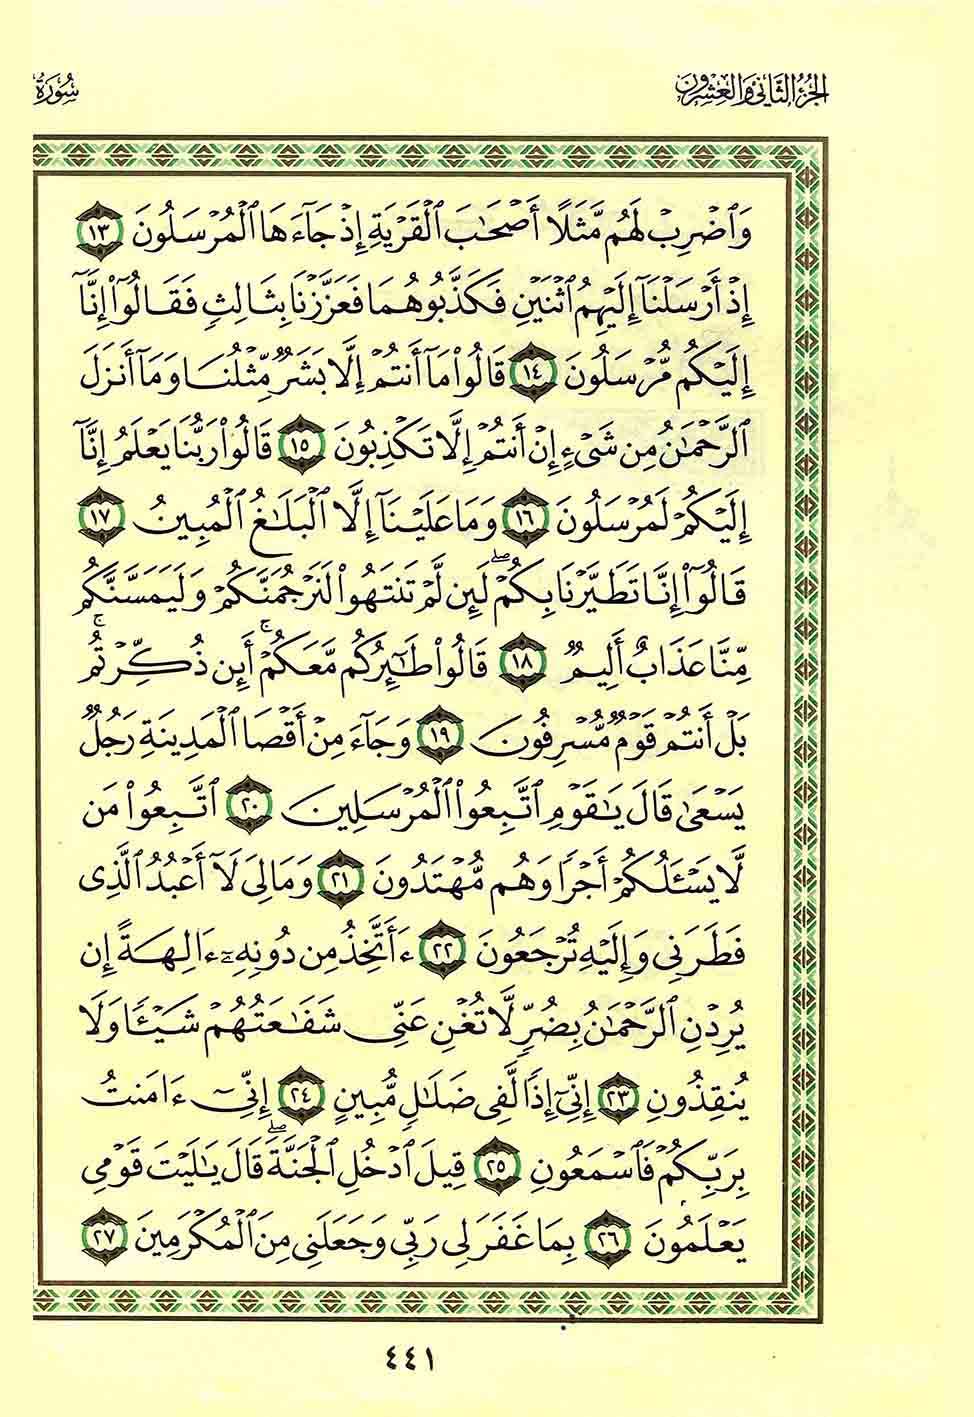 الجزء الثاني والعشرون
سورة
وَٱضۡرِبۡ لَهُم مَّثَلًا أَصۡحَٰبَ ٱلۡقَرۡيَةِ إِذۡ جَآءَهَا ٱلۡمُرۡسَلُونَ ١٣
إِذۡ أَرۡسَلۡنَآ إِلَيۡهِمُ ٱثۡنَيۡنِ فَكَذَّبُوهُمَا فَعَزَّزۡنَا بِثَالِثٖ فَقَالُوٓاْ إِنَّآ
إِلَيۡكُم مُّرۡسَلُونَ ١٤ قَالُواْ مَآ أَنتُمۡ إِلَّا بَشَرٞ مِّثۡلُنَا وَمَآ أَنزَلَ
ٱلرَّحۡمَٰنُ مِن شَيۡءٍ إِنۡ أَنتُمۡ إِلَّا تَكۡذِبُونَ ١٥ قَالُواْ رَبُّنَا يَعۡلَمُ إِنَّآ
إِلَيۡكُمۡ لَمُرۡسَلُونَ ١٦ وَمَا عَلَيۡنَآ إِلَّا ٱلۡبَلَٰغُ ٱلۡمُبِينُ ١٧
قَالُوٓاْ إِنَّا تَطَيَّرۡنَا بِكُمۡۖ لَئِن لَّمۡ تَنتَهُواْ لَنَرۡجُمَنَّكُمۡ وَلَيَمَسَّنَّكُم
مِّنَّا عَذَابٌ أَلِيمٞ ١٨ قَالُواْ طَٰٓئِرُكُم مَّعَكُمۡ أَئِن ذُكِّرۡتُمۚ
بَلۡ أَنتُمۡ قَوۡمٞ مُّسۡرِفُونَ ١٩ وَجَآءَ مِنۡ أَقۡصَا ٱلۡمَدِينَةِ رَجُلٞ
يَسۡعَىٰ قَالَ يَٰقَوۡمِ ٱتَّبِعُواْ ٱلۡمُرۡسَلِينَ ٢٠ ٱتَّبِعُواْ مَن
لَّا يَسۡـَٔلُكُمۡ أَجۡرٗا وَهُم مُّهۡتَدُونَ ٢١ وَمَالِيَ لَآ أَعۡبُدُ ٱلَّذِي
فَطَرَنِي وَإِلَيۡهِ تُرۡجَعُونَ ٢٢ ءَأَتَّخِذُ مِن دُونِهِۦٓ ءَالِهَةً إِن
يُرِدۡنِ ٱلرَّحۡمَٰنُ بِضُرّٖ لَّا تُغۡنِ عَنِّي شَفَٰعَتُهُمۡ شَيۡـٔٗا وَلَا
يُنقِذُونِ ٢٣ إِنِّيٓ إِذٗا لَّفِي ضَلَٰلٖ مُّبِينٍ ٢٤ إِنِّيٓ ءَامَنتُ
بِرَبِّكُمۡ فَٱسۡمَعُونِ ٢٥ قِيلَ ٱدۡخُلِ ٱلۡجَنَّةَۖ قَالَ يَٰلَيۡتَ قَوۡمِي
يَعۡلَمُونَ ٢٦ بِمَا غَفَرَ لِي رَبِّي وَجَعَلَنِي مِنَ ٱلۡمُكۡرَمِينَ ٢٧
٤٤١